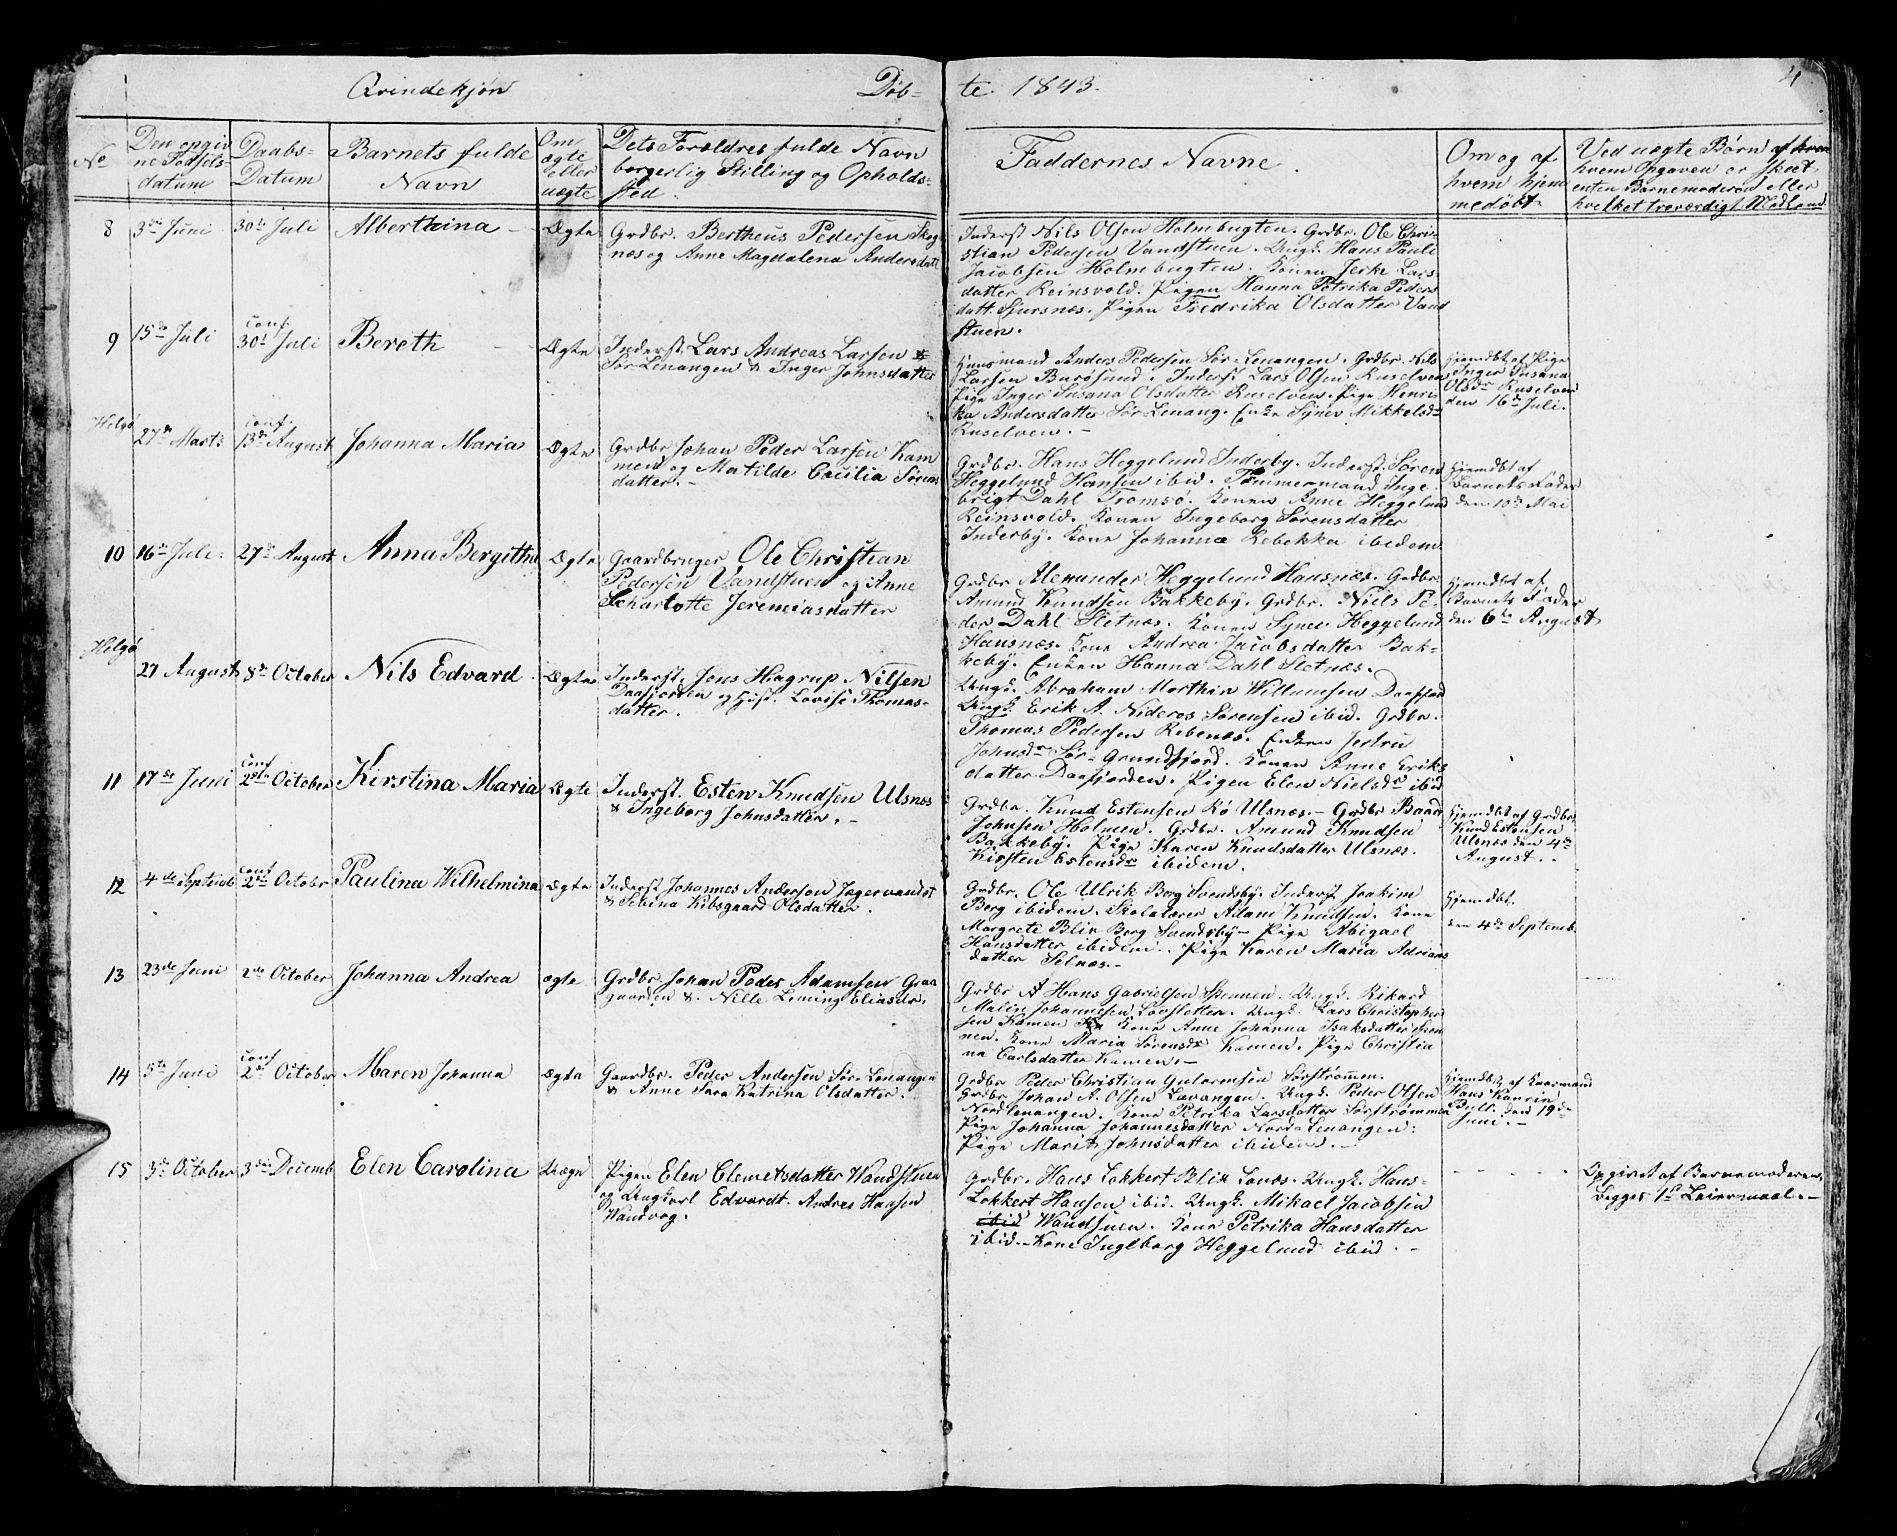 Qvindekjøn
Døb-
te. 1843.
4
No
Den opgiv
ne Fødsels
datum
Daabs-
Datum
Barnets fulde
Navn
Om
ægte
eller
uægte
Dets Forældres fulde Navn
borgerlig Stilling og Opholds-
sted.
Faddernes Navne.
Om og af
hvem hjem
medøbt
Ved uægte Børn af hvem
hvem Opgaven er skeet,
enten Barnemoderen eller
hvilket troværdigt Medlem
8
3die Juni
30te Juli
Alberthina
Ægte
Grdbr. Bertheus Pedersen Skog
næs og Anne Magdalena Andersdatt
Inderst Nils Olsen Holmbugten. Grdbr. Ole Chri-
stian Pedersen Vandstuen. Ungk. Hans Pauli
Jacobsen Holmbugten. Konen Jerke Lars-
datter Reinsvold. Pigen Hanna Petrika Peders
datt. Sjursnæs. Pigen Fredrika Olsdatter Vand
stuen.
9
15de Juli
conf.
30te Juli
Bereth
Ægte
Inderst Lars Andreas Larsen
Sør-Lenangen & Inger Johnsdatter
Huusmand Anders Pedersen Sør-Lenangen. Grdbr. Nils
Larsen Burøsund. Inderst Lars Olsen Ruselven
Pige Inger Susana Olsdatter Ruselven. Pige Henri-
ka Andersdatter Sør-Lenang. Enke Synev Mikkelsdr
Ruselven.-
Hjemdbt af Pige
Inger Susana
Olsdr Ruselven
den 16de Juli.
Helgø
27de Marts
conf.
13de August
Johanna Maria
Ægte
Grdbr Johan Peder Larsen Kam
men og Matilde Cecilia Sørens
datter.-
Grdbr. Hans Heggelund Inderby. Inderst Søren
Heggelund Hansen ibid. Tømmermand Inge-
brigt Dahl Tromsø. Konen Anne Heggelund
Reinsvold. Konen Ingeborg Sørensdatter
Inderby. Kone Johanna Rebekka ibidem
Hjemdbt af
Barnets Fader
den 10de Mai
10
16de Juli.
27de August
Anna Bergitha
Ægte
Gaardbruger Ole Christian
Pedersen Vandstuen og Anne
Scharlotte Jeremiasdatter
Grdbr Alexander Heggelund Hansnæs. Grdbr.
Amund Knudsen Bakkeby. Grdbr. Niels Pe-
der Dahl Sletnæs. Konen Synev Heggelund
Hansnæs. Kone Andrea Jacobsdatter Bak-
keby. Enken Hanna Dahl Sletnæs.
Hjemdbt af
Barnets Fader
den 6te August
Helgø
27 August
8de October
Nils Edvard
Ægte
Inderst Jens Hagrup Nilsen
Daafjorden og Hust. Lovise Thomas-
datter.
Ungk. Abraham Morthin Willumsen Daafjord
Ungk. Erik A. Nideros Sørensen ibid. Grdbr.
Thomas Pedersen Rebenæs. Enken Jertru
Johnsdr Sør-Grundfjord. Konen Anne Eriks
datter Daafjorden. Pigen Elen Nielsdr ibid
11
17de Juni
conf
2den October
Kirstina Maria
Ægte
Inderst. Esten Knudsen Ulsnæs
& Ingeborg Johnsdatter.-
Grdbr. Knud Estensen Rø Ulsnæs.- Grdbr Baard
Johnsen Holmen. Grdbr. Amund Knudsen
Bakkeby. Pige Karen Knudsdatter Ulsnæs.
Kirsten Estensdr ibidem.
Hjemdbt af Grdbr.
Knud Estensen
Ulsnæs den 4de
August.-
12
4de Septemb
conf
2den Octobr
Paulina Wilhelmina
Ægte
Inderst Johannes Andersen Jægervandet
& Sebina Kibsgaard Olsdatter.
Grdbr. Ole Ulrik Berg Svendsby. Inderst Joakim
Berg ibidem. Skolelærer Adam Knudsen. Kone
Margrete Blix Berg Svendsby - Pige Abigael
Hansdatter ibidem. Pige Karen Maria Adrians
datter Selnæs.-
Hjemdbt.
den 4de Septemb.
13
23de Juni
2den October
Johanna Andrea
ægte
Grdbr Johan Peder Adamsen Graa
gaarden &. Nille Leming Eliasdr.
Grdbr Hans Gabrielsen Spennen. Ungk. Rikard
Malin Johannesen Løvsletten. Ungk. Lars Christopher
sen Kamen Kone Anne Johanna Isaksdatter Spen
nen. Kone Maria Sørensdr Kamen. Pige Christia
na Carlsdatter Kamen.-
14
5te Juni
conf
2den October
Maren Johanna
Ægte
Gaardbr. Peder Andersen Sør-Lenangen
& Anne Sara Katrina Olsdatter.
Grdbr Peder Christian Gulormsen Sørstrømm.
Grdbr Johan A. Olsen Lævangen. Ungk. Peder Olsen
Nordlenangen. Kone Petrika Larsdatter Sørstrømmen
Pige Johanna Johannesdatter Nord-Lenangen.
Pige Marit Johnsdatter ibidem.-
Hjemdbt af
Hans
Juni.-
15
3die October
3die Decemb
Elen Carolina
Uægte
Pigen Elen Clemetsdatter Wandstuen
og Ungkarl Edvardt Andres Hansen
Wandvag.
Grdbr. Hans Lokkert Blix Lonæs. Ungk. Hans-
Lokkert Hansen ibid. Ungk. Mikael Jacobsen
ibid Wandstuen. Kone Petrika Hansdatter
ibid.-Kone Ingeborg Heggelund ibid.-
Opgivet af Barnemoderen.
Begges 1ste Leiermaal.-